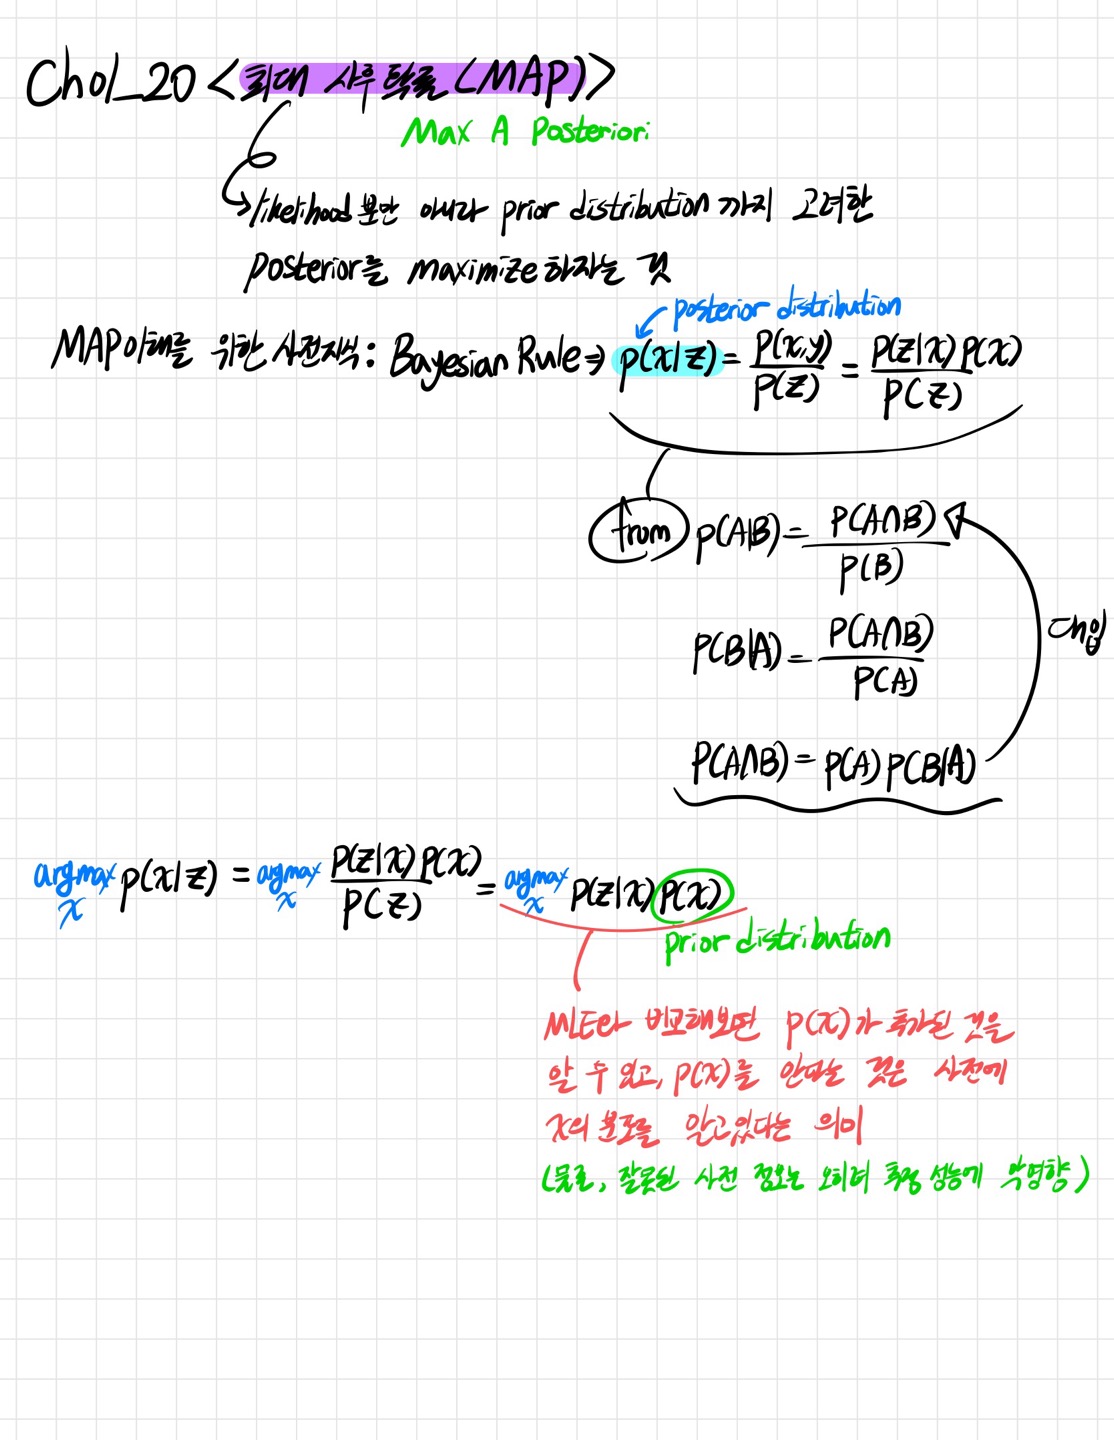 Ch01_20 <최대 사후 확률 (MAP)>
Max A Posteriori
likelihood 뿐만 아니라 prior distribution 까지 고려한
posterior를 maximize 하자는 것
posterior distribution
MAP 이해를 위한 사전지식 : Bayesian Rule ⇒ p(x|z) = p(x,y)/p(z) = p(z|x)p(x)/p(z)
from p(A|B) = P(A∩B)/p(B)
대입
P(B|A) = P(A∩B)/P(A)
P(A∩B) = P(A)P(B|A)
argmax x p(x|z) = argmax x p(z|x)p(x)/p(z) = argmax x p(z|x)p(x)
prior distribution
MLE와 비교해보면 p(x)가 추가된 것을
알 수 있고, p(x)를 안다는 것은 사전에
x의 분포를 알고있다는 의미
(물론, 잘못된 사전 정보는 오히려 추정 성능에 악영향)